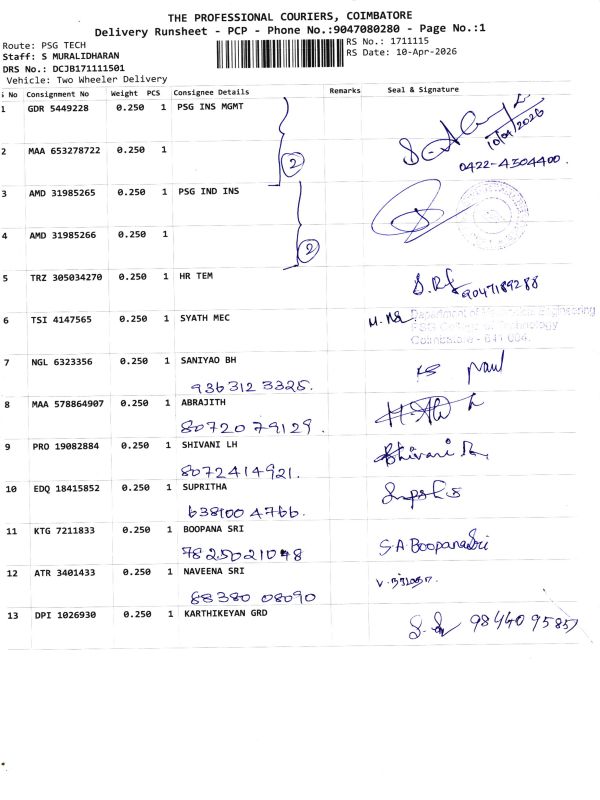 THE PROFESSIONAL COURIERS, COIMBATORE
Delivery Runsheet - PCP - Phone No.:9047080280 - Page No.:1
Route: PSG TECH
RS No.: 1711115
Staff: S MURALIDHARAN
RS Date: 10-Apr-2026
DRS No.: DCJB171111501
Vehicle: Two Wheeler Delivery
No Consignment No Weight PCS Consignee Details Remarks Seal & Signature
1 GDR 5449228 0.250 1 PSG INS MGMT
10/04/2026
2 MAA 653278722 0.250 1
2
0422-4304400.
3 AMD 31985265 0.250 1 PSG IND INS
4 AMD 31985266 0.250 1
2
5 TRZ 305034270 0.250 1 HR TEM
9047189288
6 TSI 4147565 0.250 1 SYATH MEC
Engineering
PSG College of Technology
Coimbatore - 641 004.
7 NGL 6323356 0.250 1 SANIYAO BH
9363123325.
8 MAA 578864907 0.250 1 ABRAJITH
8072079129.
9 PRO 19082884 0.250 1 SHIVANI LH
8072414921.
10 EDQ 18415852 0.250 1 SUPRITHA
6381004766.
11 KTG 7211833 0.250 1 BOOPANA SRI
S.A.BoopanaSri
7825021048
12 ATR 3401433 0.250 1 NAVEENA SRI
8838008090
13 DPI 1026930 0.250 1 KARTHIKEYAN GRD
9844095857